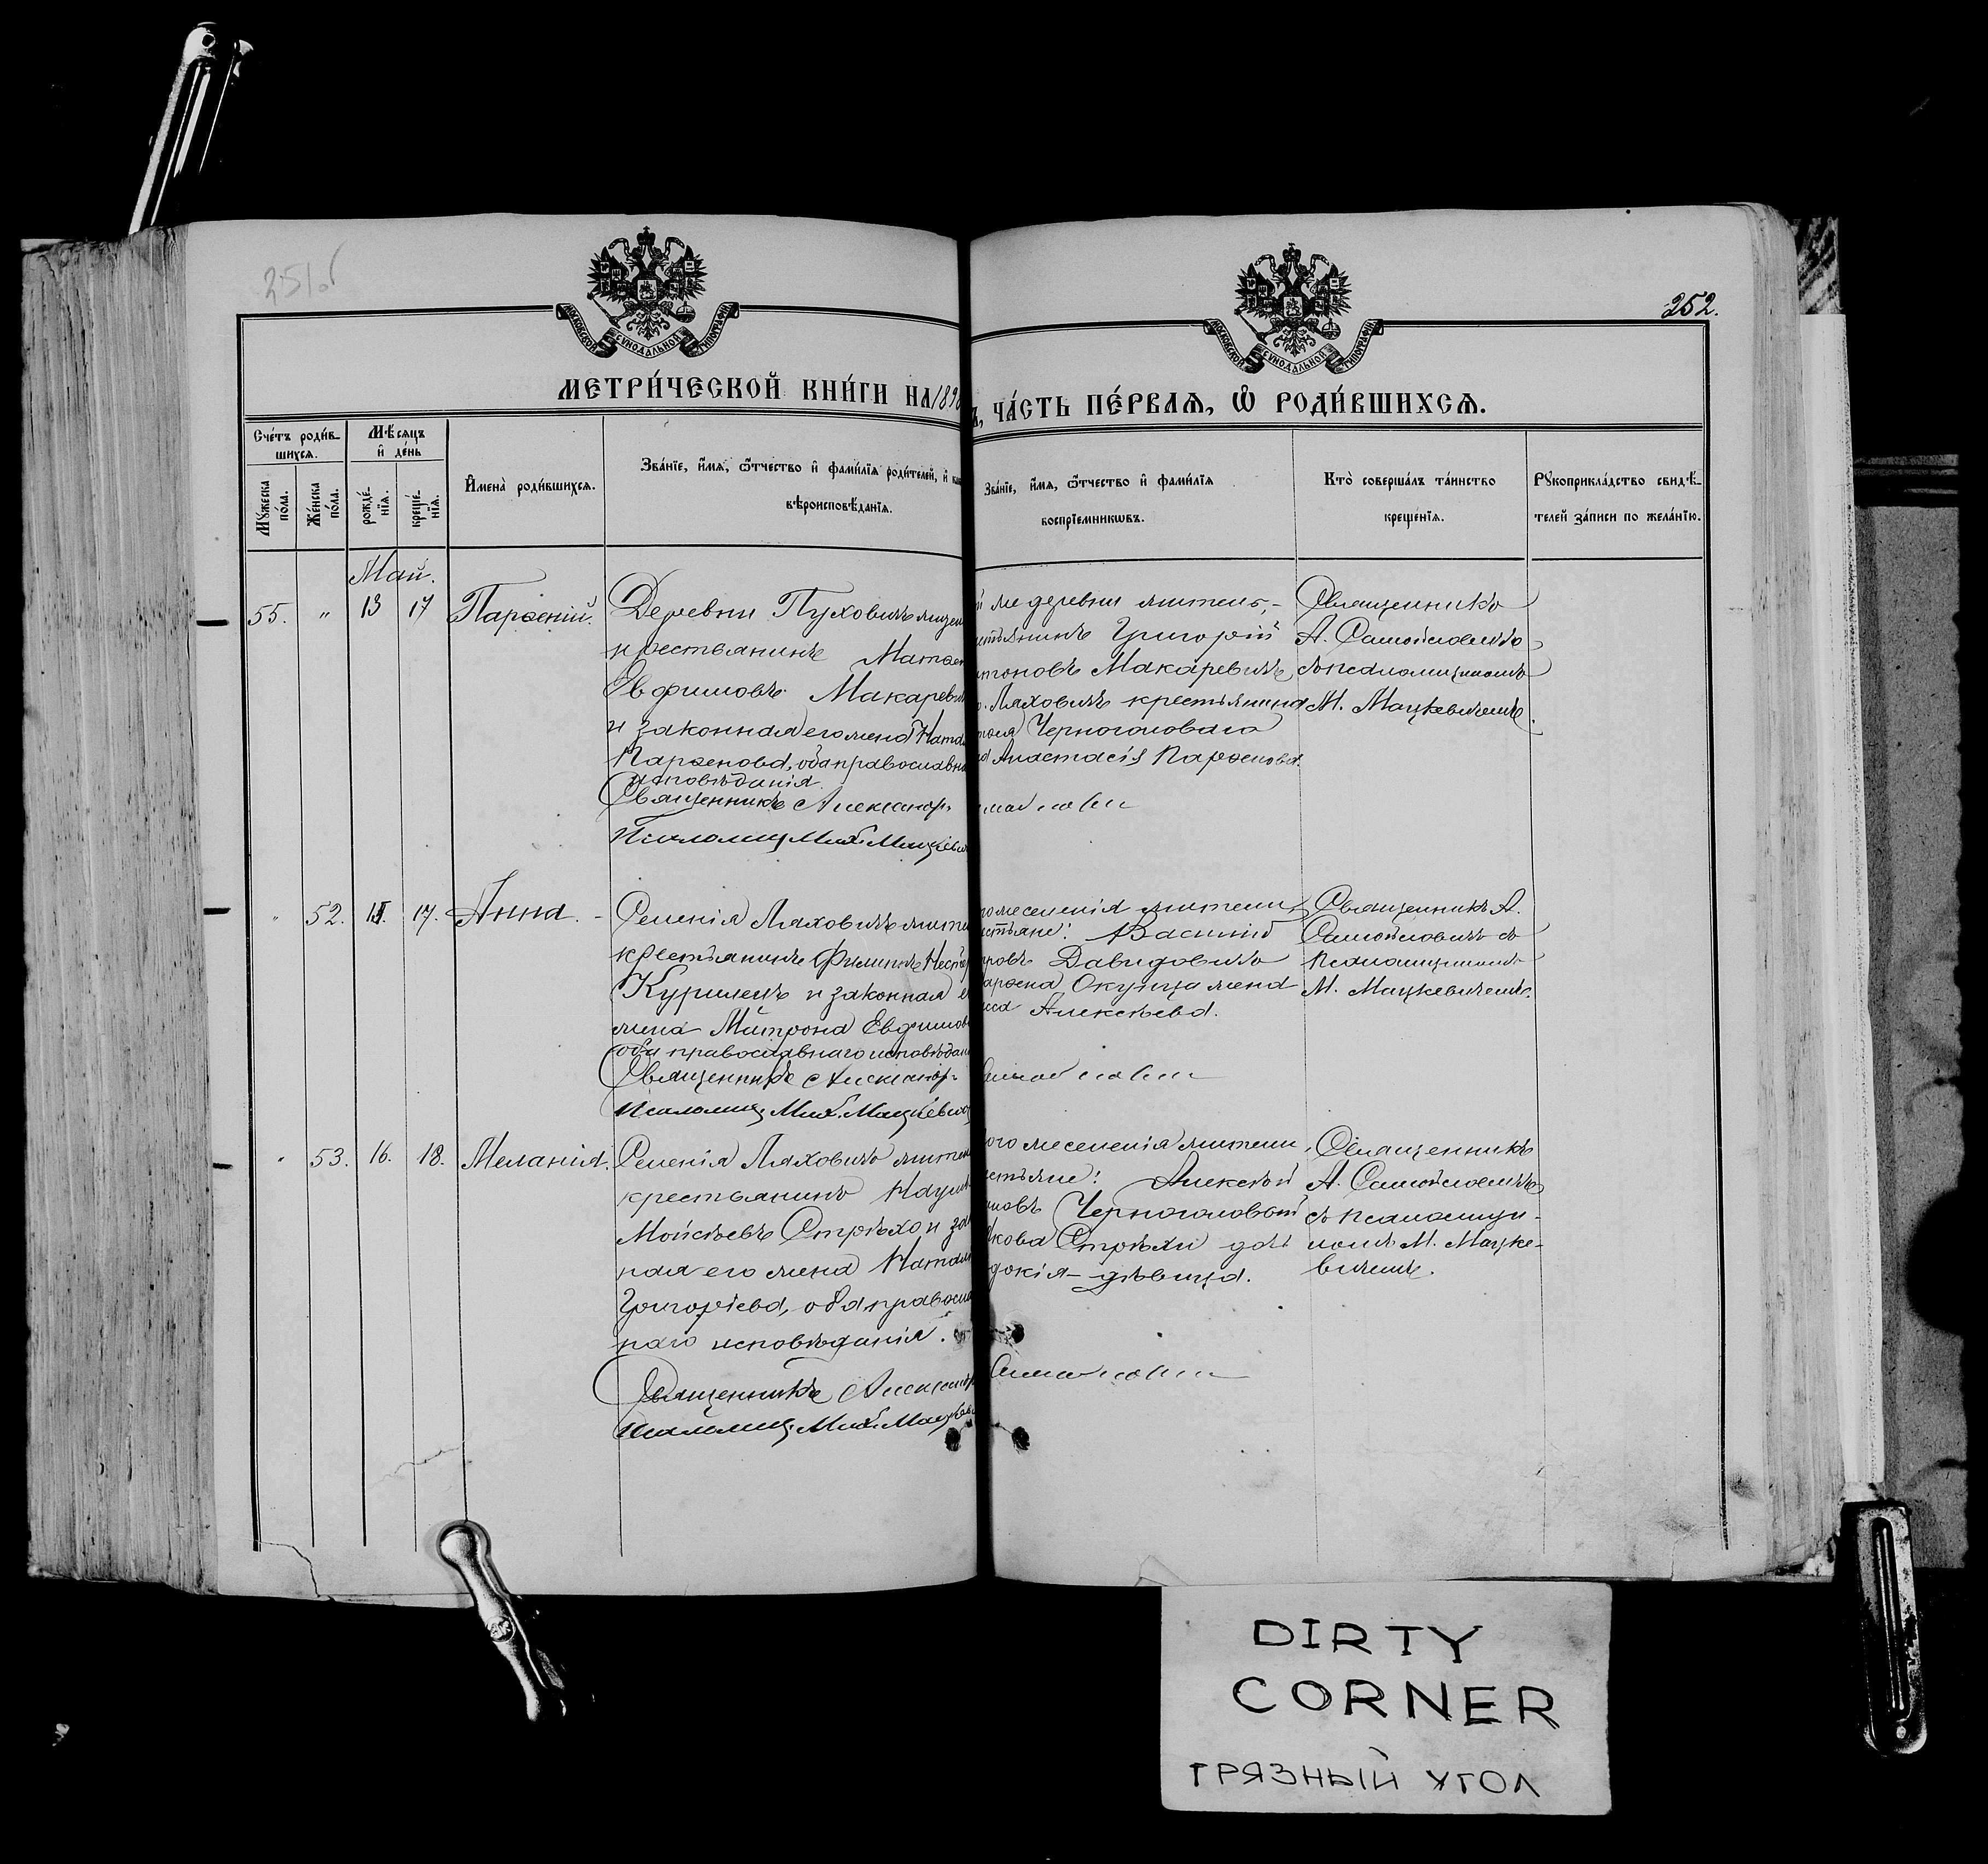 251об
252.
МОСКОВСКОЙ СѴНОДАЛЬНОЙ ТИПОГРАФІИ
МОСКОВСКОЙ СѴНОДАЛЬНОЙ ТИПОГРАФІИ
МЕТРИ́ЧЕСКОЙ КНИ́ГИ НА 189
, ЧА́СТЬ ПЕ́РВАѦ, Ѡ҆ РОДИ́ВШИХСѦ.
Сче́тъ роди́в-
шихсѧ.
Мꙋ́жеска по́ла.
Же́нска по́ла.
Мѣ́сѧцъ
и҆ де́нь
рожде́-нїѧ.
креще́-нїѧ.
И҆мена̀ роди́вшихсѧ.
Зва́нїе, и҆́мѧ, ѻ҆́тчество и҆ фами́лїѧ роди́телей, и҆
вѣроисповѣ́данїѧ.
Зва́нїе, и҆́мѧ, ѻ҆́тчество и҆ фами́лїѧ
воспрїе́мникѡвъ.
Кто̀ соверша́лъ та́инство
креще́нїѧ.
Рꙋкоприкла́дство свидѣ́-
телей за́писи по жела́нїю.
Май.
55. " 13 17 Парѳеній.
Деревни Пуховичъ
крестьянинъ Матѳе
Евфимовъ Макаревич
и законная его жена Ната
Парѳенова, оба православна
исповѣданія.
Священникъ Александръ
Псаломщ. Мих. Мацкевич
же деревни житель,-
стьянинъ Григорій
нтоновъ Макаревичъ
Ляховичъ крестьянина
Черноголоваго
Анастасія Парѳенова.
Священникъ
А. Самойловичъ
съ псаломщикомъ
М. Мацкевичемъ.
" 52. 15. 17. Анна. -
Селенія Ляховичъ жите
крестьянинъ Филиппъ Несте
Курилецъ и законная е
жена Матрона Евфимов
оба православнаго исповѣдан
Священникъ Александръ
Псаломщ. Мих. Мацкевич
гоже селенія жители
стьяне: Василій
ровъ Давидовичъ
арѳена Окунца жена
Алексѣева.
Самойлович
Священникъ А.
Самойловичъ съ
псаломщикомъ
М. Мацкевичемъ.
" 53. 16. 18. Меланія.
Селенія Ляховичъ жите
крестьянинъ Наум
Моисѣевъ Стрѣха и зак
ная его жена Натал
Григоріева, оба правосла
наго исповѣданія.
Священникъ Александръ
Псаломщ. Мих. Мацкевич
ого же селенія жители,
стьяне: Алексѣй
новъ Черноголовый
кова Стрѣхи дочь
докія - дѣвица.
Самойлович
Священникъ
А. Самойловичъ
съ псаломщи-
комъ М. Мацке-
вичемъ.
DIRTY
CORNER
ГРЯЗНЫЙ УГОЛ